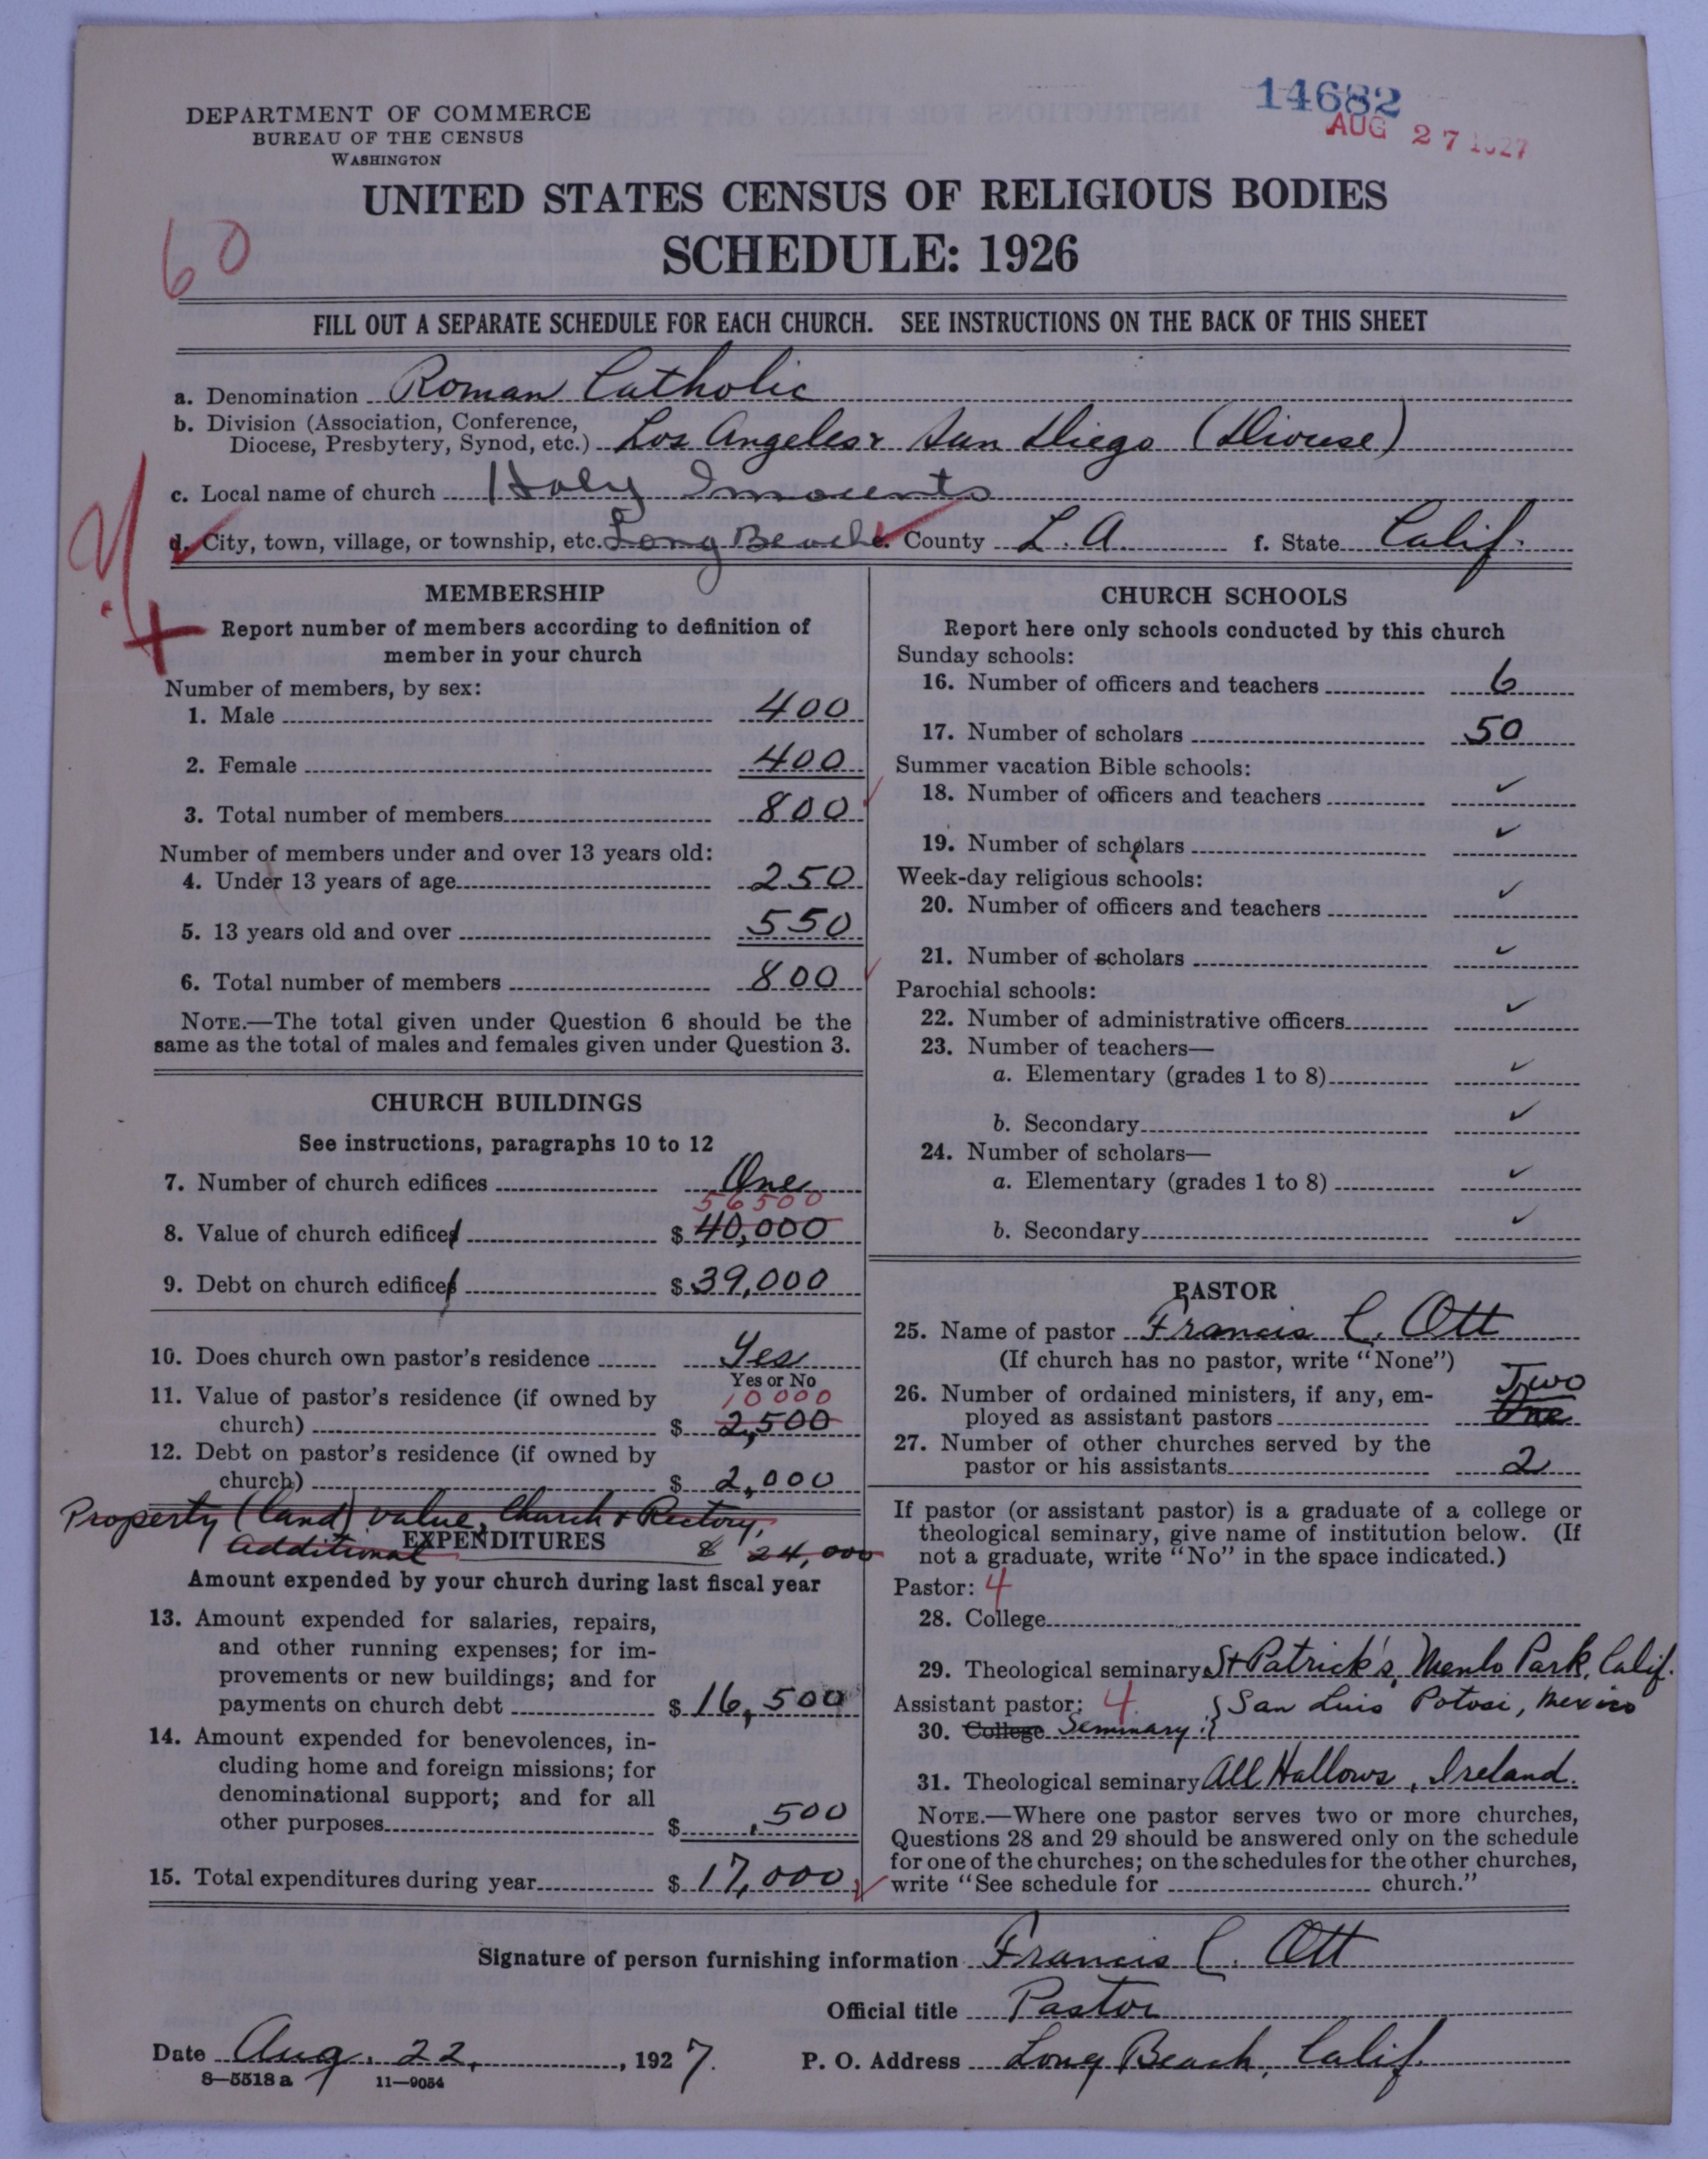 14682
AUG 27 1927
DEPARTMENT OF COMMERCE
BUREAU OF THE CENSUS
WASHINGTON
UNITED STATES CENSUS OF RELIGIOUS BODIES
SCHEDULE: 1926
60
FILL OUT A SEPARATE SCHEDULE FOR EACH CHURCH. SEE INSTRUCTIONS ON THE BACK OF THIS SHEET
a. Denomination Roman Catholic
b. Division (Association, Conference,
Diocese, Presbytery, Synod, etc.) Los Angeles & San Diego (Diocese)
c. Local name of church Holy Innocents
d. City, town, village, or township, etc. Long Beach e. County L.A. f. State Calif.
MEMBERSHIP
Report number of members according to definition of
member in your church
Number of members, by sex:
1. Male 400
2. Female 400
3. Total number of members 800
Number of members under and over 13 years old:
4. Under 13 years of age 250
5. 13 years old and over 550
6. Total number of members 800
NOTE.—The total given under Question 6 should be the
same as the total of males and females given under Question 3.
CHURCH BUILDINGS
See instructions, paragraphs 10 to 12
7. Number of church edifices One
56500
8. Value of church edifices $ 40,000
9. Debt on church edifices $ 39,000
10. Does church own pastor's residence Yes
Yes or No
11. Value of pastor's residence (if owned by 10000
church) $ 2,500
12. Debt on pastor's residence (if owned by
church) $ 2,000
Property (land) value, Church & Rectory,
Additional $ 24,000
EXPENDITURES
Amount expended by your church during last fiscal year
13. Amount expended for salaries, repairs,
and other running expenses; for im-
provements or new buildings; and for
payments on church debt $ 16,500
14. Amount expended for benevolences, in-
cluding home and foreign missions; for
denominational support; and for all
other purposes $ ,500
15. Total expenditures during year $ 17,000
CHURCH SCHOOLS
Report here only schools conducted by this church
Sunday schools:
16. Number of officers and teachers 6
17. Number of scholars 50
Summer vacation Bible schools:
18. Number of officers and teachers ✓
19. Number of scholars ✓
Week-day religious schools:
20. Number of officers and teachers ✓
21. Number of scholars ✓
Parochial schools:
22. Number of administrative officers ✓
23. Number of teachers—
a. Elementary (grades 1 to 8) ✓
b. Secondary ✓
24. Number of scholars—
a. Elementary (grades 1 to 8) ✓
b. Secondary ✓
PASTOR
25. Name of pastor Francis C. Ott
(If church has no pastor, write "None")
26. Number of ordained ministers, if any, em- Two
ployed as assistant pastors One
27. Number of other churches served by the
pastor or his assistants 2
If pastor (or assistant pastor) is a graduate of a college or
theological seminary, give name of institution below. (If
not a graduate, write "No" in the space indicated.)
Pastor: 4
28. College
29. Theological seminary St Patrick's, Menlo Park, Calif.
Assistant pastor: 4 { San Luis Potosi, Mexico
30. College Seminary:
31. Theological seminary All Hallows, Ireland.
NOTE.—Where one pastor serves two or more churches,
Questions 28 and 29 should be answered only on the schedule
for one of the churches; on the schedules for the other churches,
write "See schedule for church."
Signature of person furnishing information Francis C. Ott
Official title Pastor
Date Aug. 22, 1927. P. O. Address Long Beach, Calif.
8—5518 a 11—9054